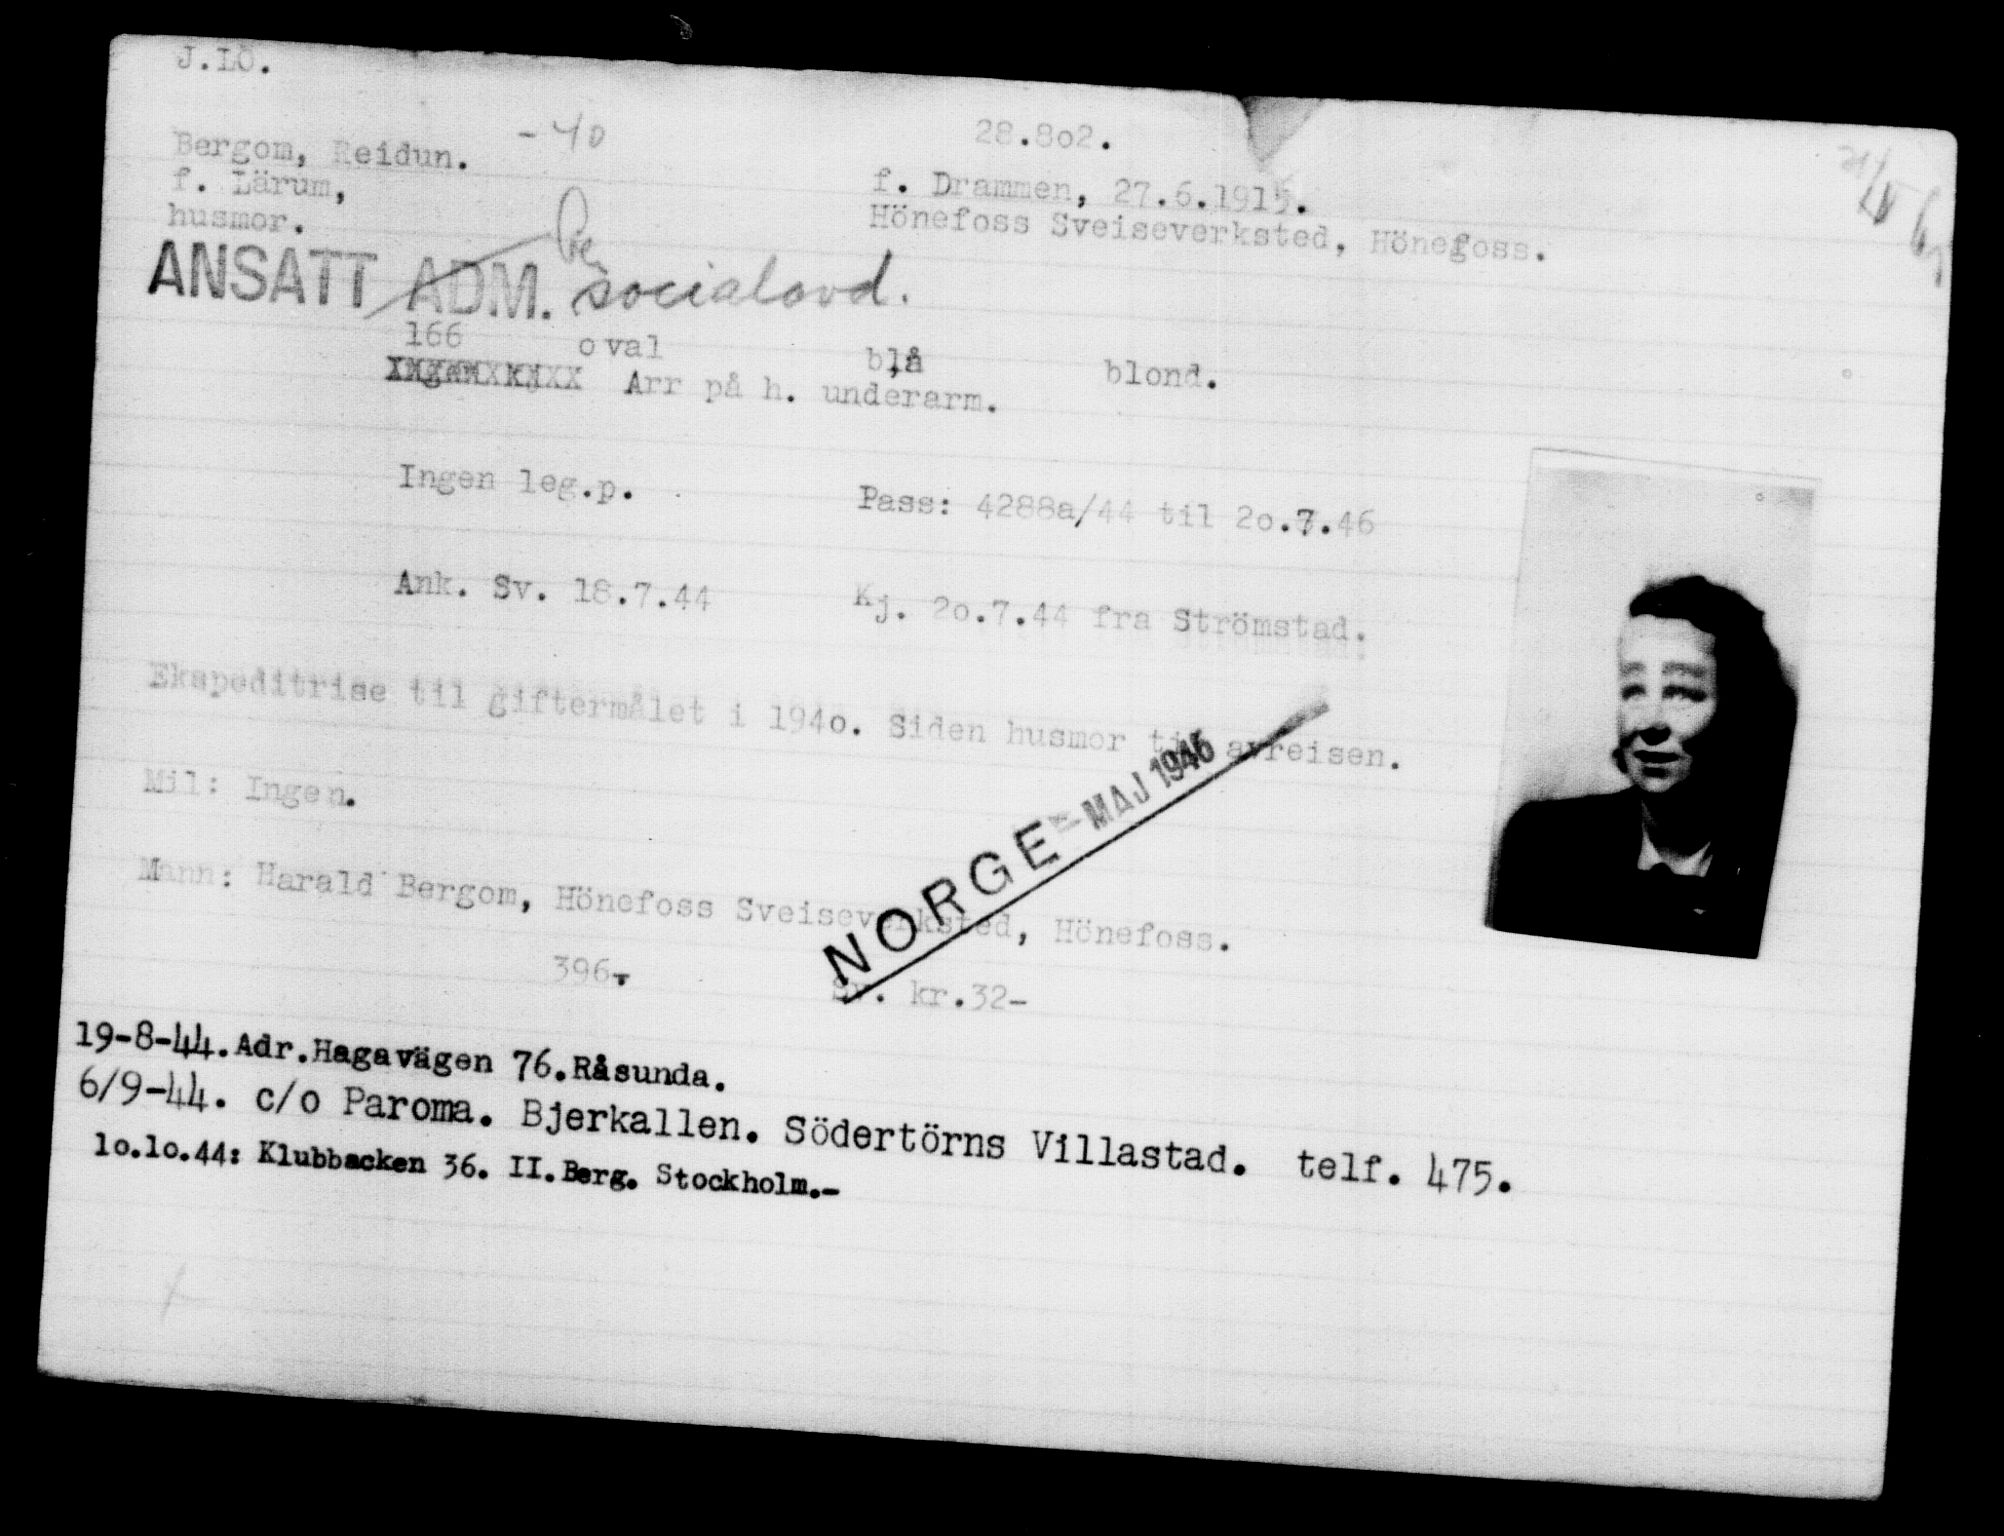 J.LÖ.
- 40
28.8o2.
Bergom, Reidun.
f. Lärum,
husmor.
f. Drammen, 27.6.1915.
Hönefoss Sveiseverksted, Hönefoss.
ANSATT ADM. socialavd.
166 oval blå blond.
Arr på h. underarm.
Ingen leg.p. Pass: 4288a/44 til 2o.7.46
Ank. Sv. 18.7.44 Kj. 2o.7.44 fra Strömstad.
Ekspeditrise til giftermålet i 194o. Siden husmor til avreisen.
NORGE - MAJ 1945
Mil: Ingen.
Mann: Harald Bergom, Hönefoss Sveiseverksted, Hönefoss.
396,- Sv. kr.32-
19-8-44.Adr.Hagavägen 76.Råsunda.
6/9-44. c/o Paroma. Bjerkallen. Södertörns Villastad. telf. 475.
lo.lo.44: Klubbacken 36. II.Berg. Stockholm.-